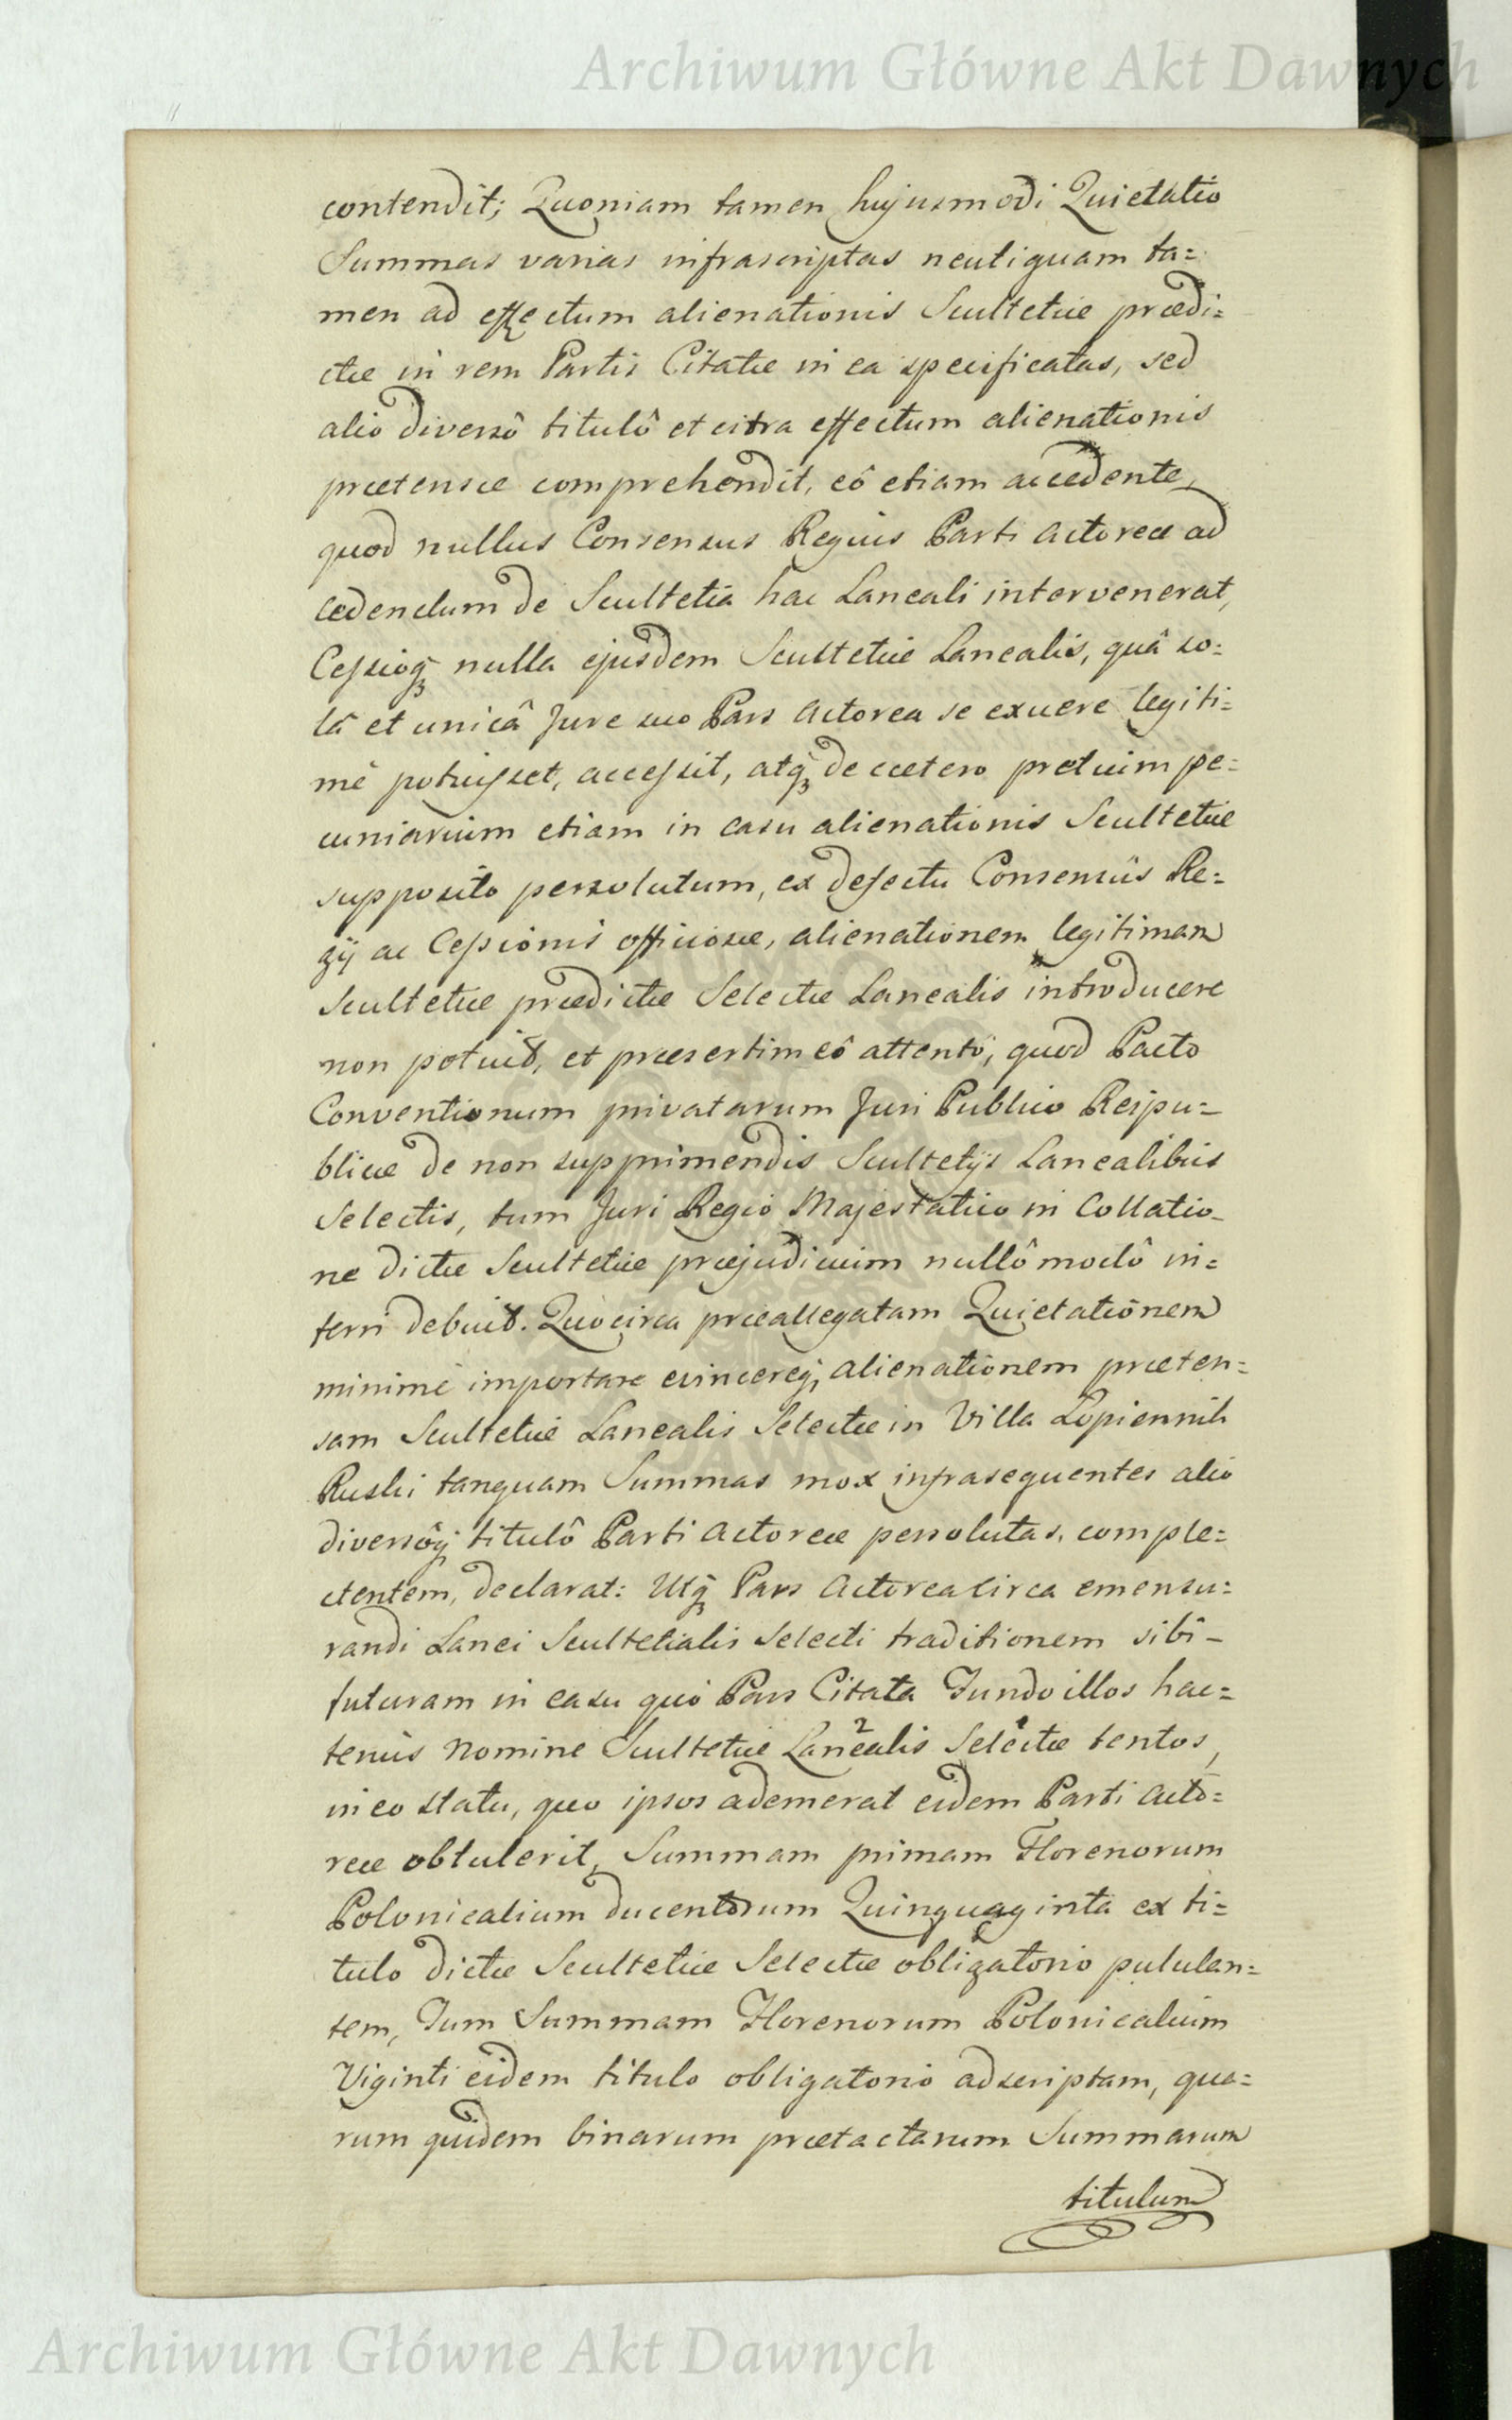 Archiwum Główne Akt Dawnych
contendit; Quoniam tamen hujusmodi Quietatio
Summas varias infrascriptas neutiquam ta=
men ad effectum alienationis Scultetiæ prædi=
ctæ in rem Partis Citatæ in ea specificatas, sed
alio diversô titulô et citra effectum alienationis
prætensæ comprehendit, eô etiam accedente,
quod nullus Consensus Regius Parti Actoreæ ad
cedendum de Scultetia hac Laneali intervenerat,
Cessioq; nulla ejusdem Scultetiæ Lanealis, quâ so=
lâ et unicâ Jure suo Pars Actorea se exuere legiti=
mè potuisset, accessit, atq; de cætero pretium pe=
cuniarium etiam in casu alienationis Scultetiæ
supposito persolutum, ex defectu Consensûs Re=
gij ac Cessionis officiosæ, alienationem legitimam
Scultetiæ prædictæ Selectæ Lanealis introducere
non potuit, et præsertim eô attentô, quod Pacto
Conventionum privatarum Juri Publico Reipu=
blicæ de non supprimendis Scultetijs Lanealibus
Selectis, tum Juri Regio Majestatico in Collatio_
ne dictæ Scultetiæ præjudicium nullô modô in=
ferri debuit. Quocirca præallegatam Quietationem
minimè importare evincereq; alienationem præten=
sam Scultetiæ Lanealis Selectæ in Villa Łopiennik
Ruski tanquam Summas mox infrasequentes alio
diversôq; titulô Parti Actoreæ persolutas, comple=
ctentem, declarat: Utq; Pars Actorea circa emensu=
randi Lanei Scultetialis Selecti traditionem sibi_
futuram in casu quo Pars Citata Fundo illos hac=
tenus Nomine Scultetiæ Lanealis Selectæ tentos,
in eo statu, quo ipsos ademerat eidem Parti Acto=
reæ obtulerit, Summam primam Florenorum
Polonicalium ducentorum Quinquaginta ex ti=
tulo dictæ Scultetiæ Selectæ obligatorio pululan=
tem, Tum Summam Florenorum Polonicalium
Viginti eidem titulo obligatorio adscriptam, qua=
rum quidem binarum prætactarum Summarum
titulum
Archiwum Główne Akt Dawnych